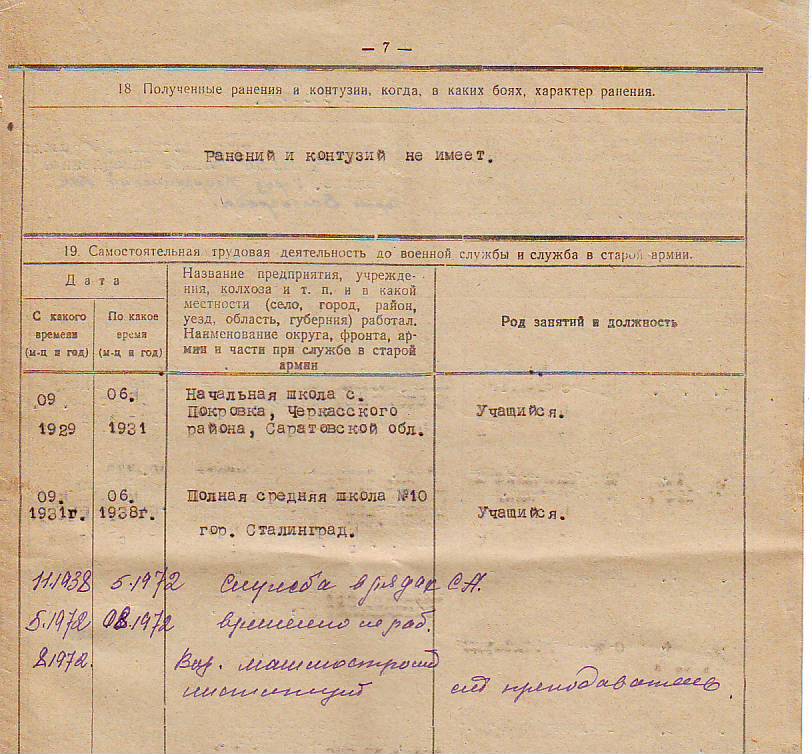 — 7 —
18 Полученные ранения и контузии, когда, в каких боях, характер ранения.
Ранений и контузий не имеет.
19. Самостоятельная трудовая деятельность до военной службы и служба в старой армии.
Дата
С какого
времени
(м-ц и год)
По какое
время
(м-ц и год)
Название предприятия, учрежде-
ния, колхоза и т. п. и в какой
местности (село, город, район,
уезд, область, губерния) работал.
Наименование округа, фронта, ар-
мии и части при службе в старой
армии
Род занятий и должность
09 06. Начальная школа с.
Покровка, Черкасского
1929 1931 района, Саратовской обл.
Учащийся.
09. 06. Полная средняя школа №10
1931г. 1938г. Учащийся.
гор. Сталинград.
11.1938 5.1972 Служба в рядах С.А.
5.1972 08.1972 временно не раб.
8.1972. машиностроит
институт преподаватель